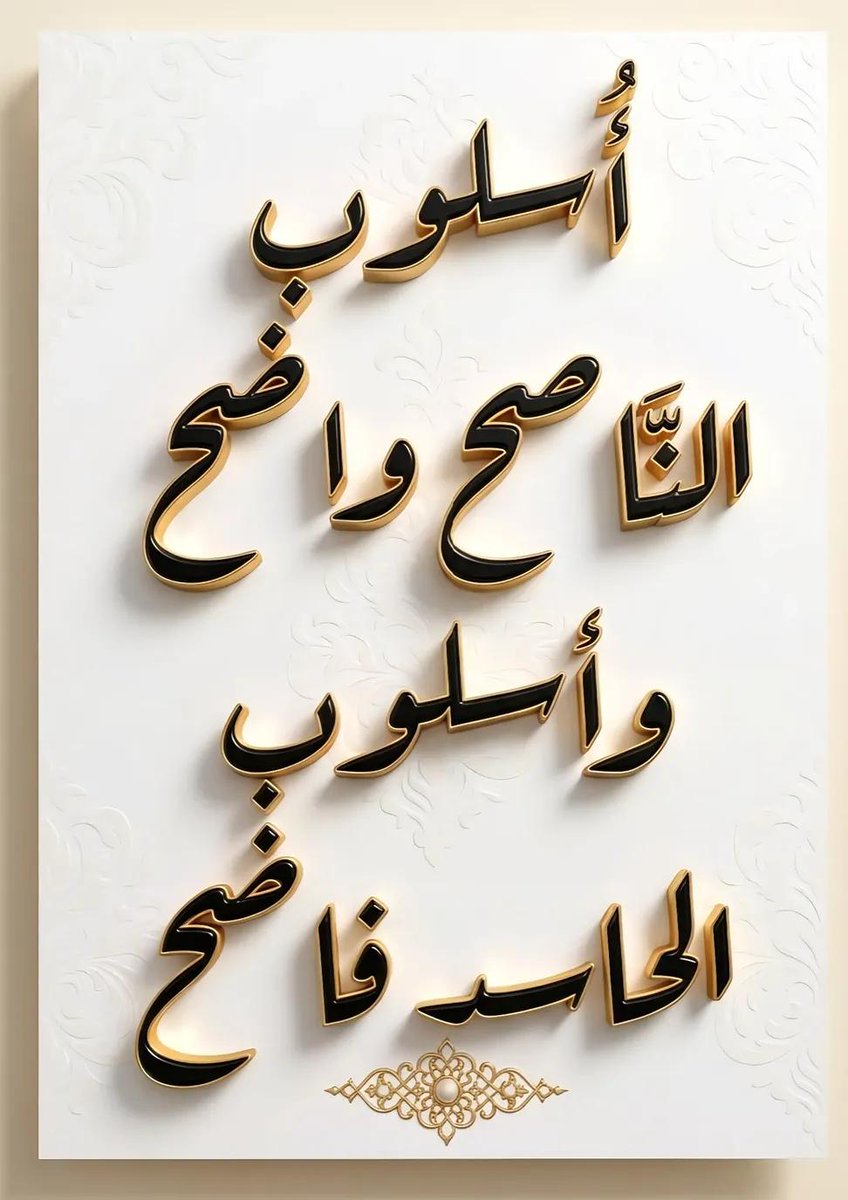 أُسلوب
النَّاصح واضح
وأسلوب
الحاسد فاضح